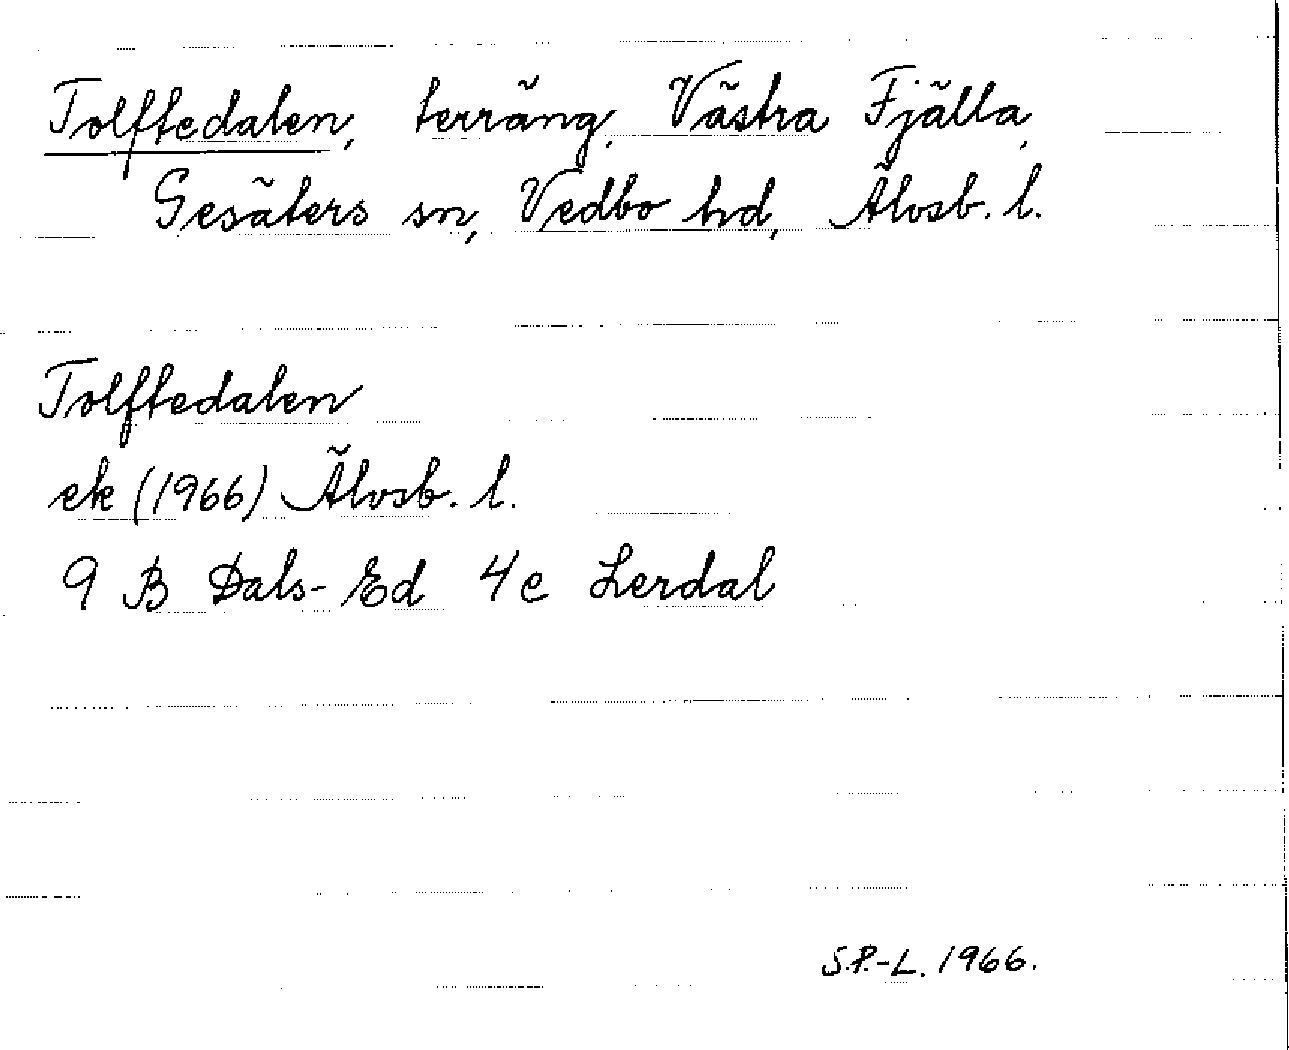 Tolftedalen, terräng, Västra Fjälla,
Gesäters sn, Vedbo hd, Älvsb. l.
Tolftedalen
ek (1966) Älvsb. l.
9 B Dals-Ed 4 e Lerdal
S.P.-L. 1966.